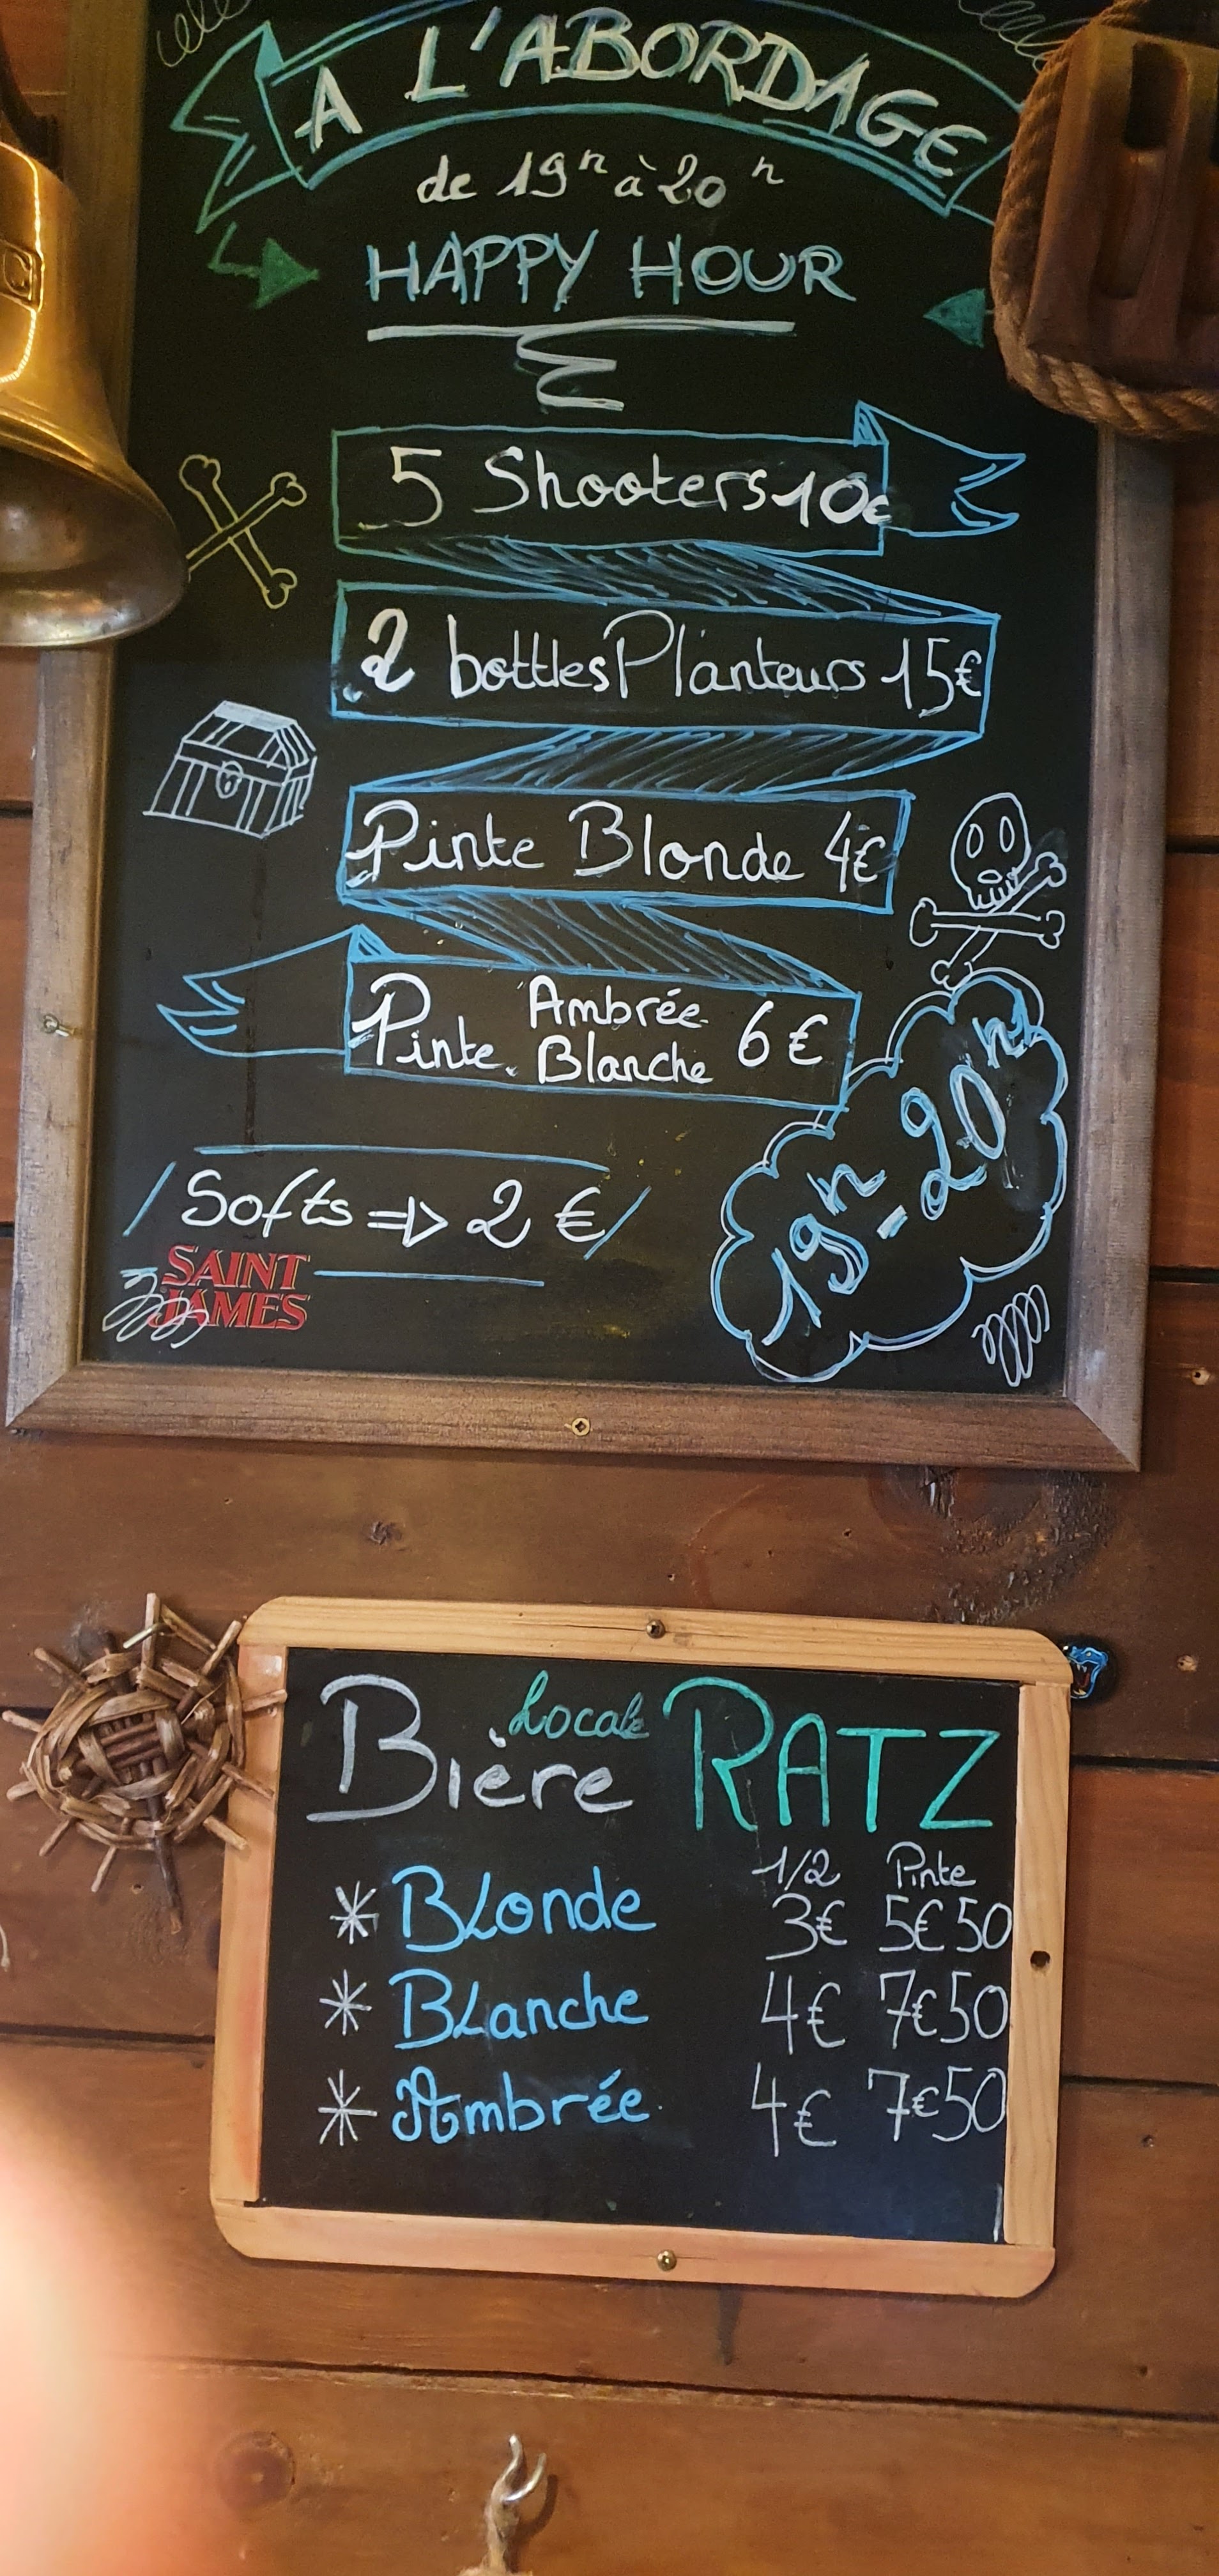 A L'ABORDAGE
de 19h à 20h
HAPPY HOUR
5 Shooters 10€
2 bottles Planteurs 15€
Pinte Blonde 4€
Pinte Ambrée Blanche 6€
19h-20h
Softs => 2€
SAINT
JAMES
Bière Locale RATZ
1/2 Pinte
* Blonde 3€ 5€50
* Blanche 4€ 7€50
* Ambrée 4€ 7€50